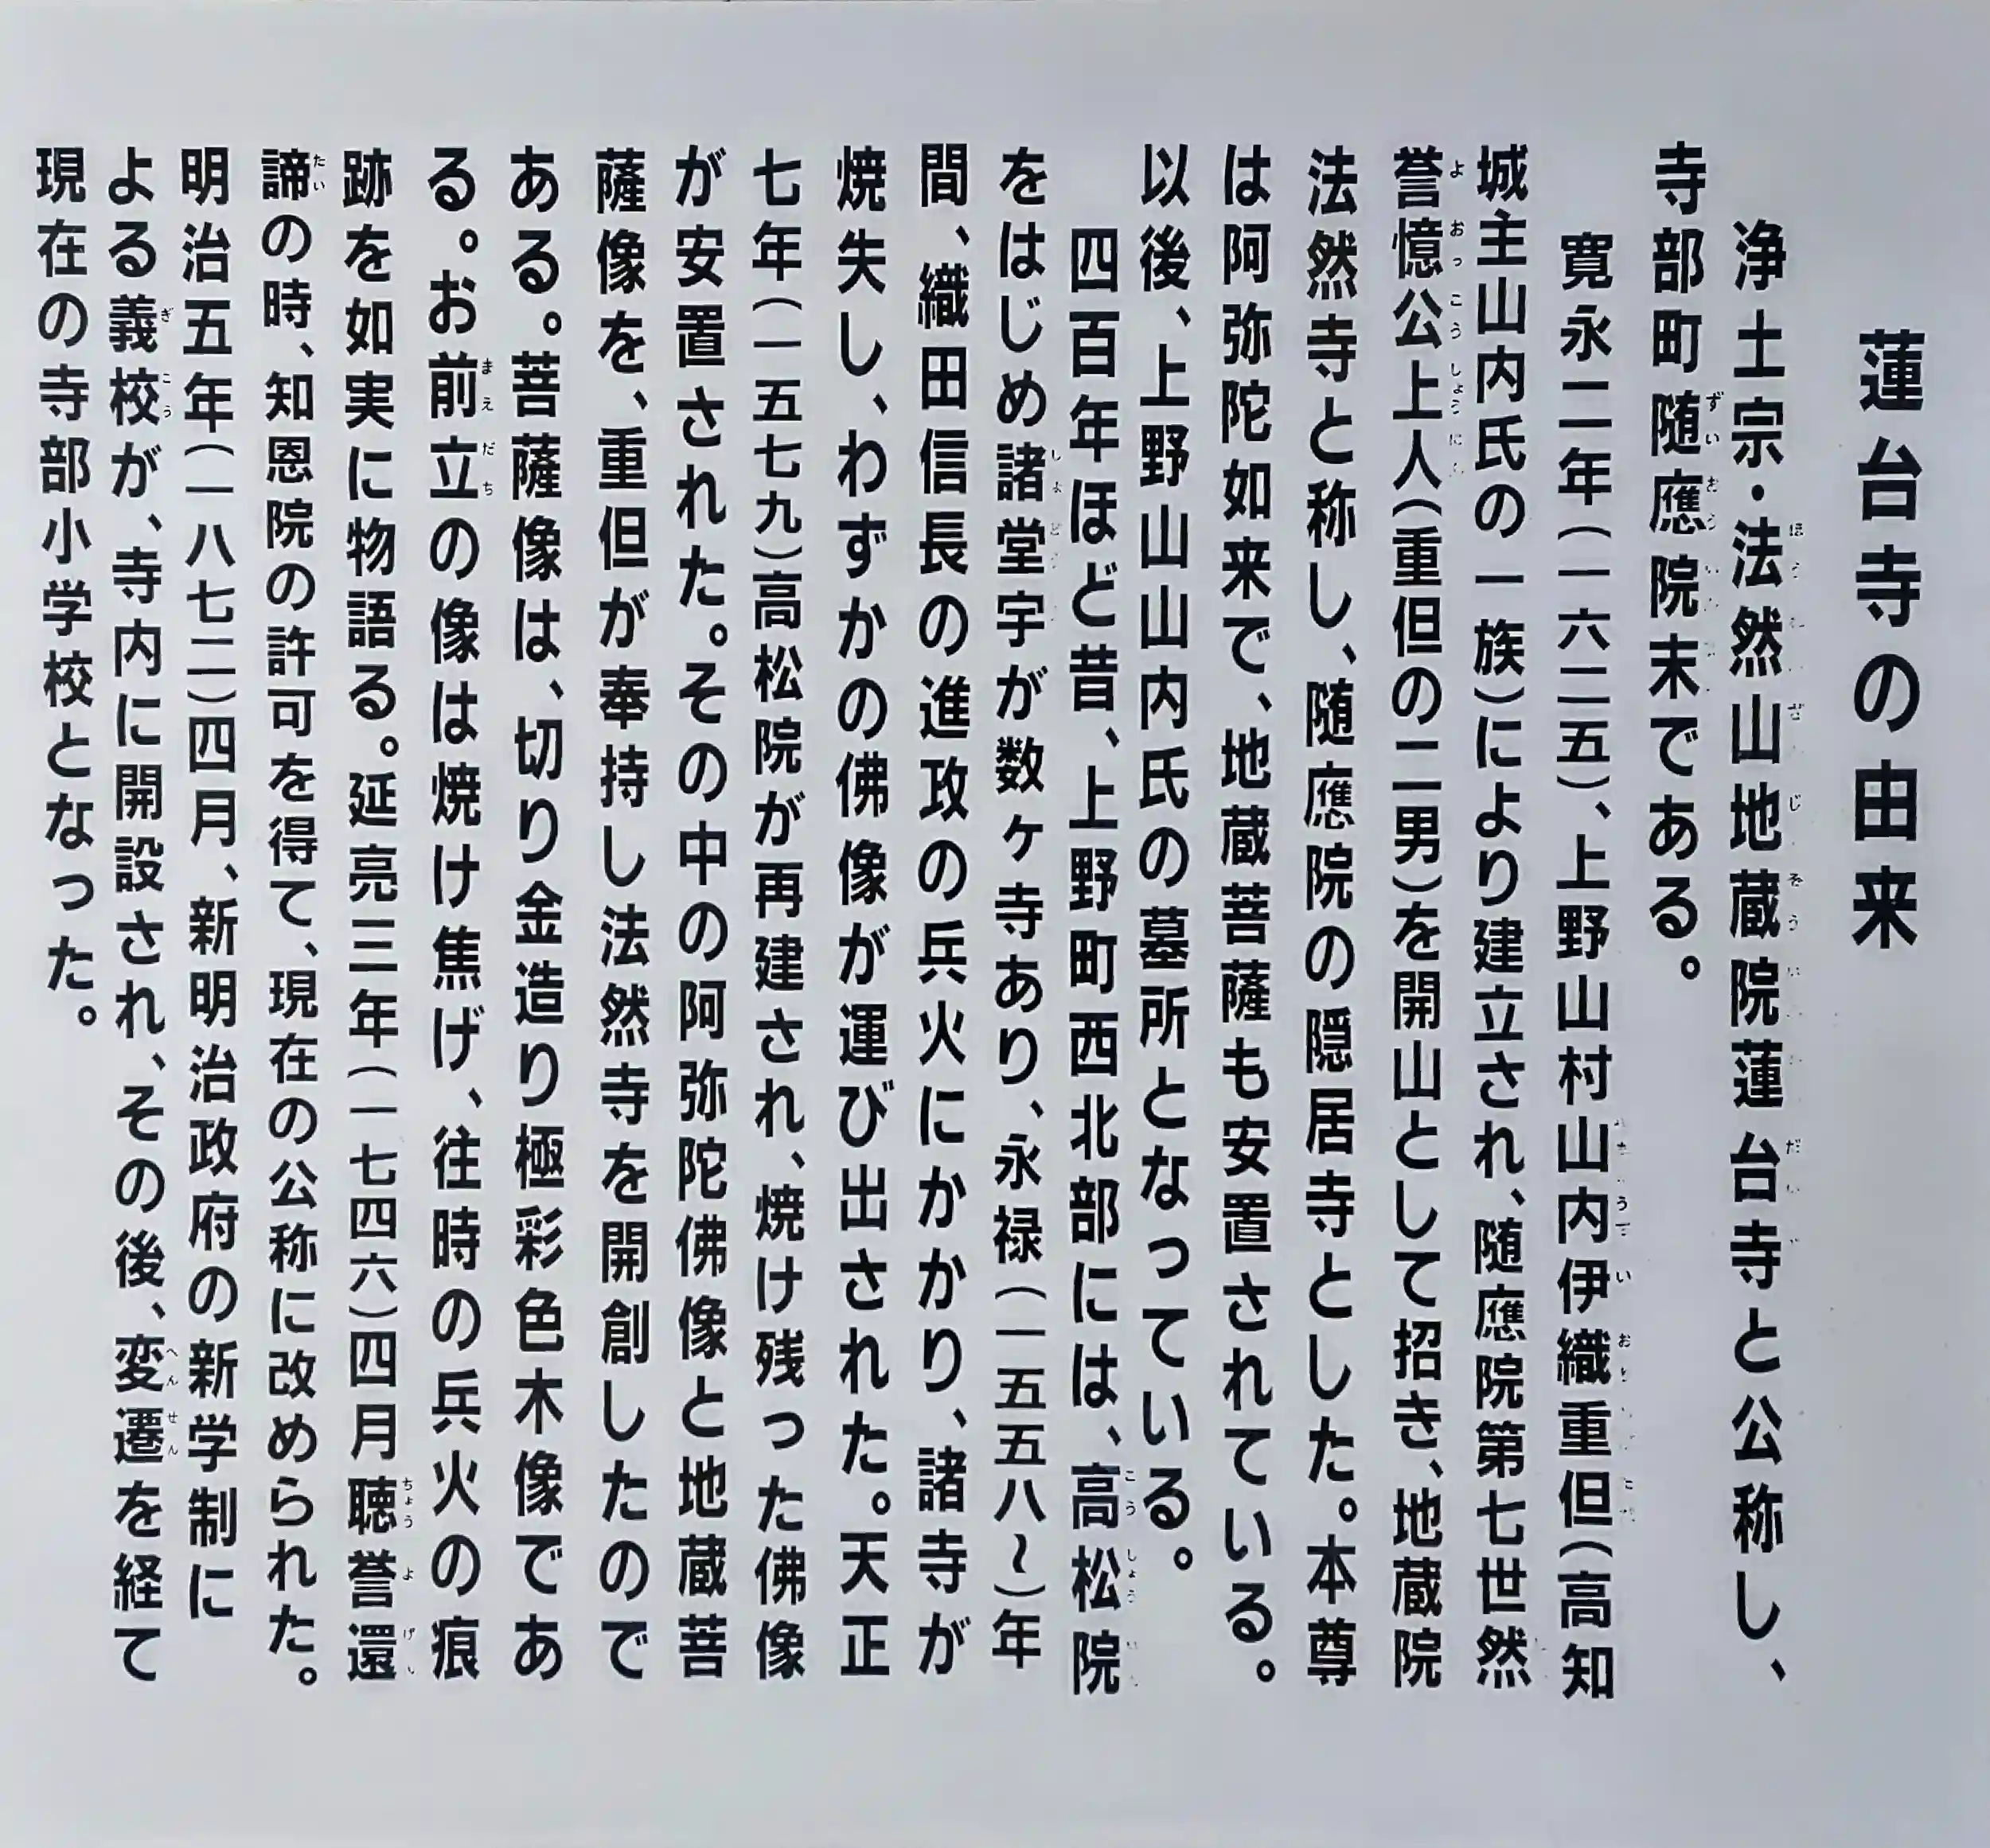 蓮台寺の由来
浄土宗・法然山地蔵院蓮台寺と公称し、
寺部町随應院末である。
寛永二年(一六二五)、上野山村山内伊織重但(高知
城主山内氏の一族)により建立され、随應院第七世然
誉憶公上人(重但の二男)を開山として招き、地蔵院
法然寺と称し、随應院の隠居寺とした。本尊
は阿弥陀如来で、地蔵菩薩も安置されている。
以後、上野山山内氏の墓所となっている。
四百年ほど昔、上野町西北部には、高松院
をはじめ諸堂宇が数ヶ寺あり、永禄(一五五八〜)年
間、織田信長の進攻の兵火にかかり、諸寺が
焼失し、わずかの佛像が運び出された。天正
七年(一五七九)高松院が再建され、焼け残った佛像
が安置された。その中の阿弥陀佛像と地蔵菩
薩像を、重但が奉持し法然寺を開創したので
ある。菩薩像は、切り金造り極彩色木像であ
る。お前立の像は焼け焦げ、往時の兵火の痕
跡を如実に物語る。延亮三年(一七四六)四月聴誉還
諦の時、知恩院の許可を得て、現在の公称に改められた。
明治五年(一八七二)四月、新明治政府の新学制に
よる義校が、寺内に開設され、その後、変遷を経て
現在の寺部小学校となった。